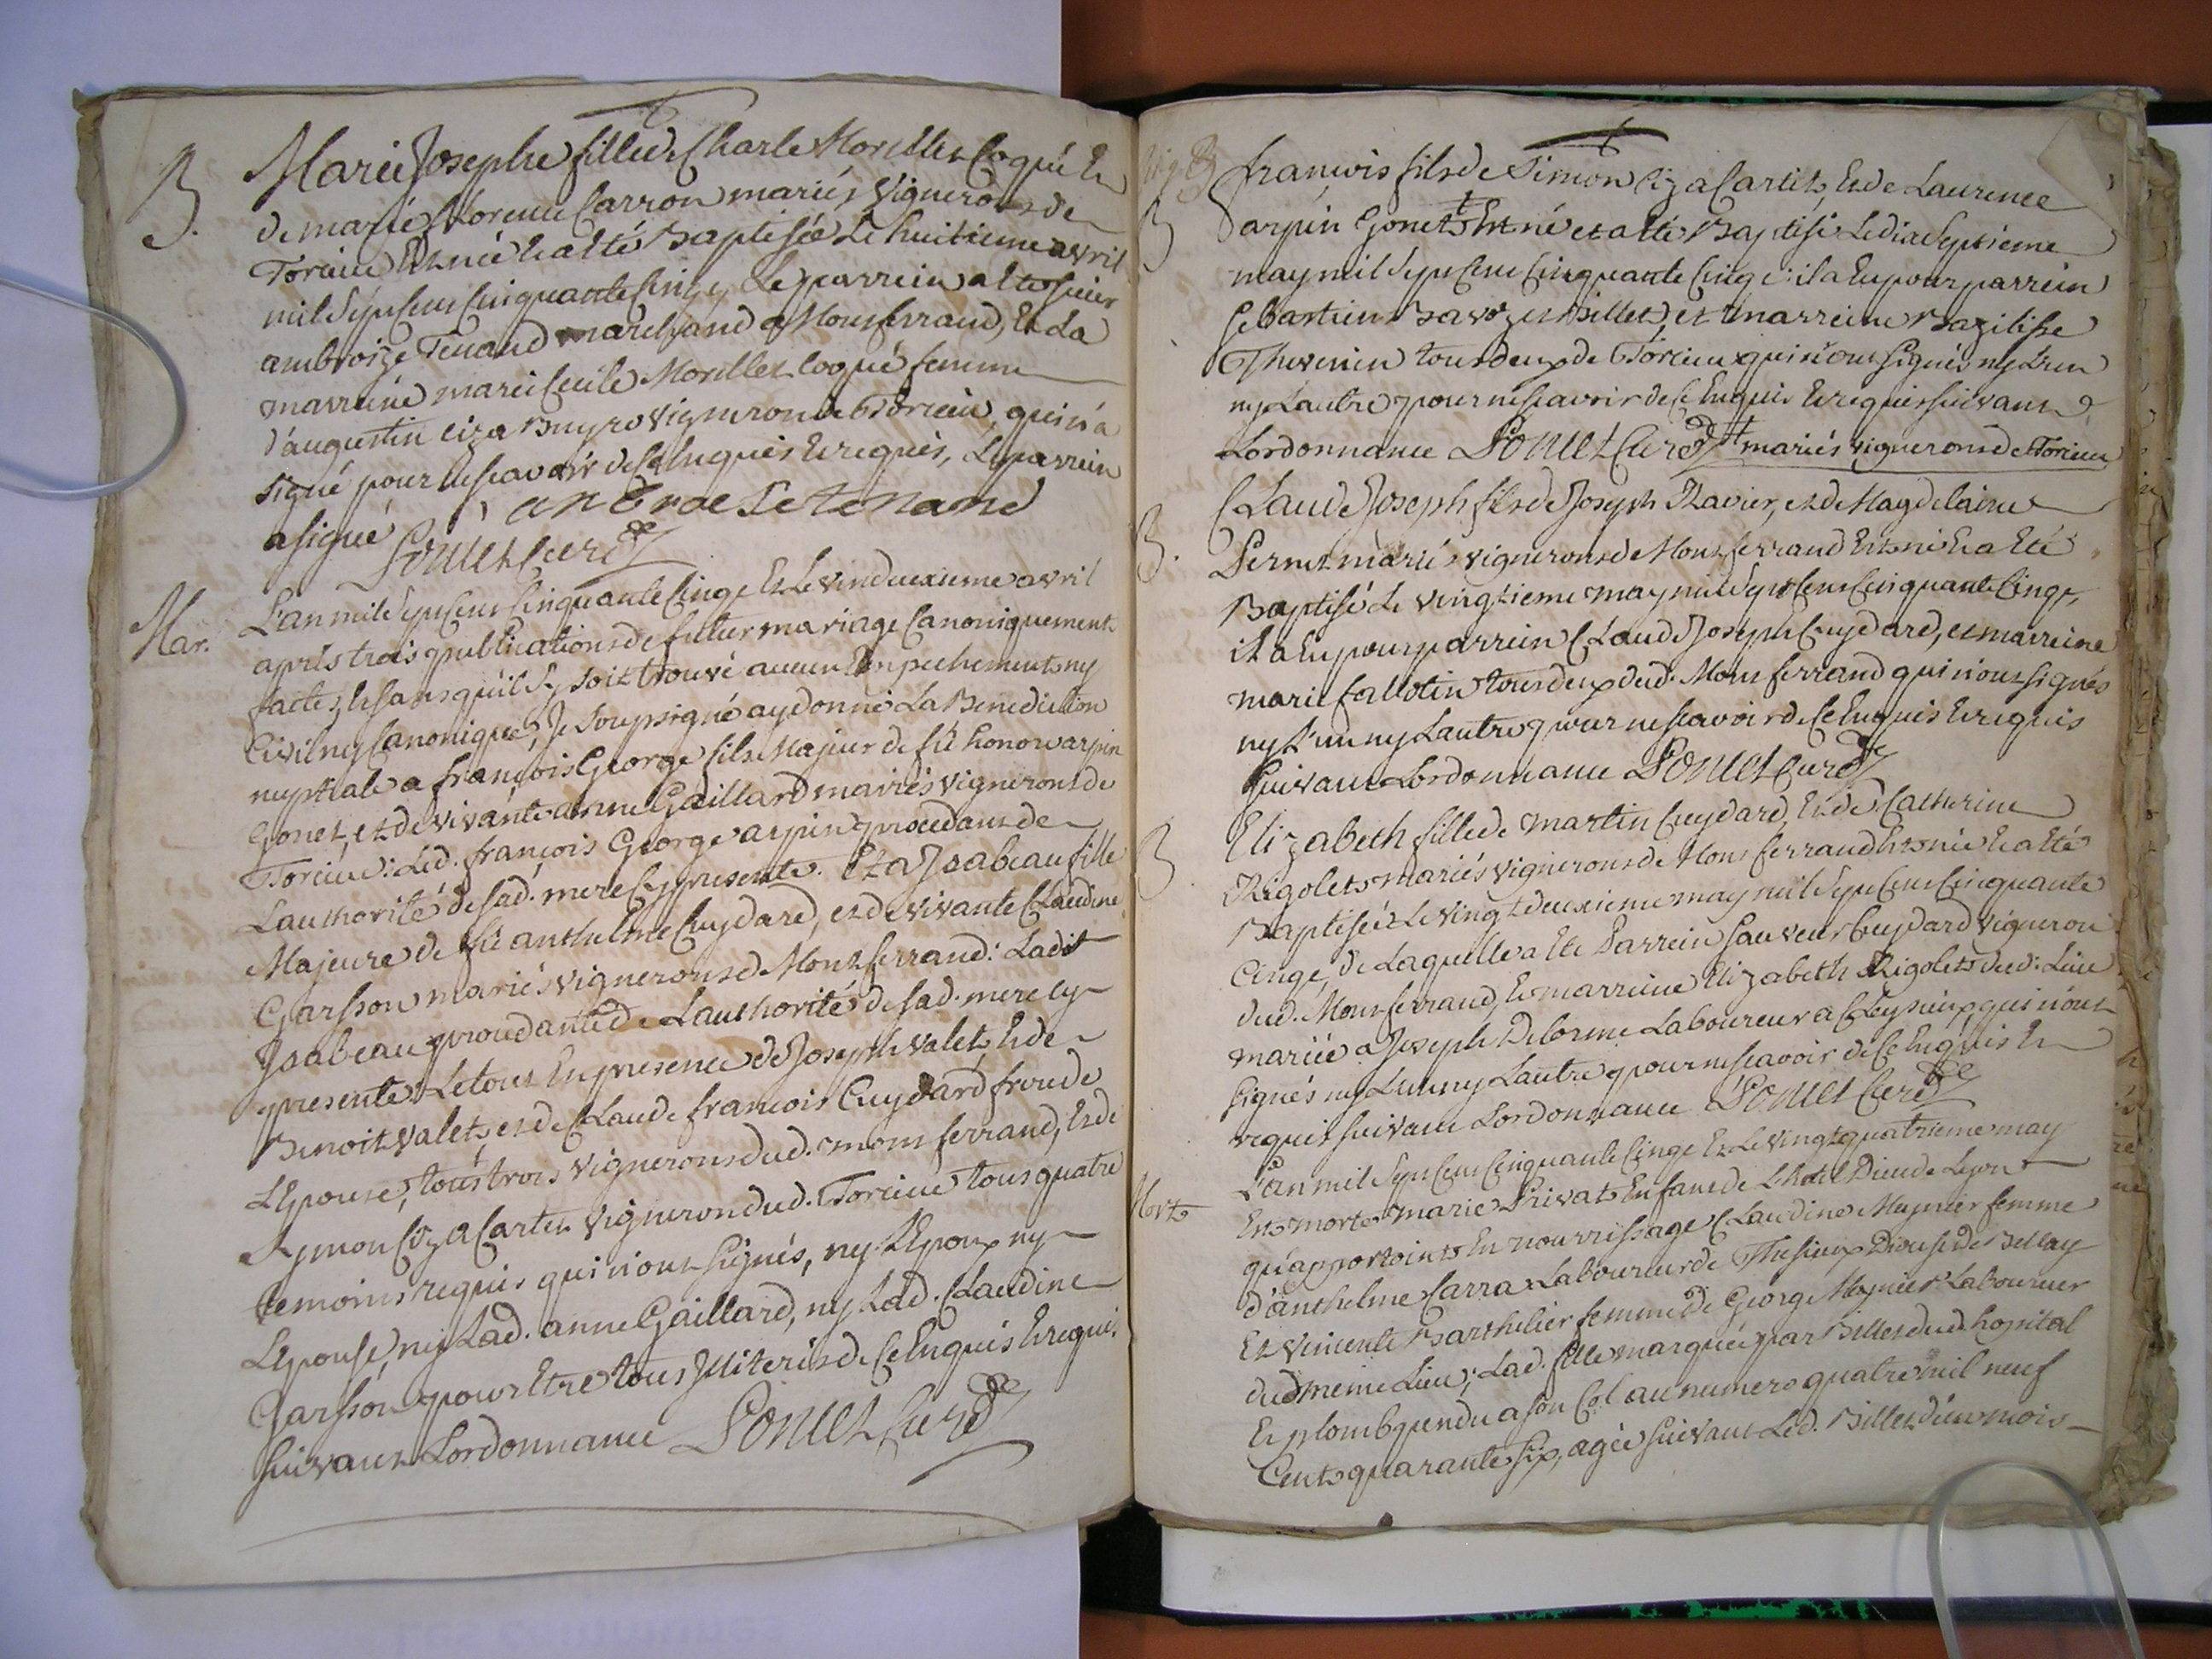 B. Marie Josephe fille de Charle Morellet Coqué Et
de marie Lorence Carron mariés Vignerons de
Torcieu Est née Et a Eté Baptisée Le huitieme avril
mil sept cens cinquante cinq, Le parrein a Eté sieur
ambroize Tenand marchand a Monsferrand, Et La
marreine marie Cecile Morellet coqué femme
d'augustin ciza Buyro vigneron de Torcieu, qui n'a
signé pour ne scavoir de ce Enquis Et requis, Le parrein
a signé an Broe Se tenand
Ponet Curé
Mar. L'an mil sept cens cinquante cinq Et Le vindeuxieme avril
apres trois publications de futur mariage Canoniquement
faites, Et sans qu'il sy soit trouvé aucun Empechement ny
Civil ny Canonique, Je soussigné ay donné La Benediction
nuptiale a françois George fils Majeur de fû honoré arpin
Gonet, et de vivante anne Gaillard mariés vignerons de
Torcieu: Led. françois George arpin procedant de
L'authorité de sad. mere Cy presente. Et a Isabeau fille
Majeure de fû anthelme Cuydard, et de vivante Claudine
Garsson mariés vignerons de Monsferrand: Ladit
Isabeau procedante de Lauthorité de sad. mere cy
presente. Le tout En presence de Joseph Valet, Et de
Benoit Valet, et de Claude françois Cuydard frere de
L'Epouse, tous trois vignerons dud. mons ferrand, Et de
Symon Ciza Cartet vigneron dud. Torcieu tous quatre
temoins requis qui n'ont signés, ny L'Epoux ny
L'Epouse, ny Lad. anne Gaillard, ny Lad. Claudine
Garsson pour Etre tous Illiterés de ce Enquis Et requis
suivant Lordonnance Ponet Curé
B françois fils de Simon Ciza Cartet, Et de Laurence
arpin Gonet + Est né et a Eté Baptisé Le dixseptieme
may mil sept cens cinquante cinq: il a Eu pour parrein
Sebastien Savoz et Billet, et marreine Bazilisse
Thevenin tous deux de Torcieu qui n'ont signés ny L'un
ny Lautre pour ne scavoir de ce Enquis Et requis suivant
Lordonnance Ponet Curé + mariés vignerons de Torcieu
B. Claude Joseph fils de Joseph Xavier, et de Magdelaine
Pernet mariés vignerons de Mons ferrand Est né Et a Eté
Baptisé Le vingtieme may mil sept cens cinquante cinq,
il a Eu pour parrein Claude Joseph Cuydard, et marreine
marie fallotin tous deux dud. Mons ferrand qui n'ont signés
ny L'un ny Lautre pour ne scavoir de ce Enquis Et requis
suivant Lordonnance Ponet Curé
B Elizabeth fille de Martin Cuydard, Et de Catherine
Rigolet mariés vignerons de Mons ferrand Est née Et a Eté
Baptisée Le vingt deuxieme may mil sept cens cinquante
Cinq, de Laquelle a Eté Parrein sauveur Cuydard vigneron
dud. Mons ferrand, Et marreine Elizabeth Rigolet dud: Lieu
mariée a Joseph Delorme Laboureur a Cleyzieux qui n'ont
signés ny L'un ny Lautre pour ne scavoir de ce Enquis Et
requis suivant Lordonnance Ponet Curé
Mort. L'an mil sept cens cinquante cinq Et Le vingt quatrieme may
Est morte marie Privat Enfant de L'hotel Dieu de Lyon
qu'apportoint En nourrissage Claudine Meynier femme
d'anthelme Carra Laboureur de Thesieux Diocese de Bellay
Et Vincente Barthelier femme de George Meynier Laboureur
dud. meme Lieu; Lad. fille marquée par Billet dud. hopital
Et plomb pendu a son Col au numero quatre mil neuf
Cent quarante six, agée suivant Led. Billet d'un mois